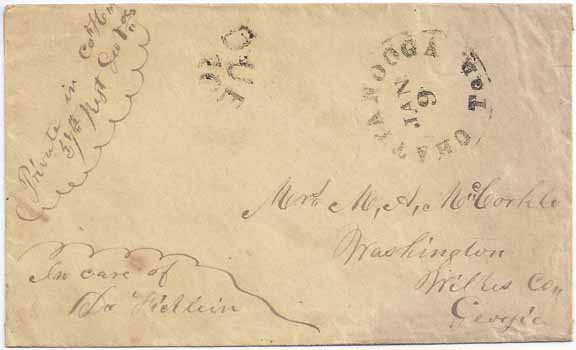 Private in Co "H"
59th Regt Ga Vols
DUE
10
CHATTANOOGA Ten.
JAN
9
Mrs. M, A, McCorkle
Washington
Wilkes Co,,
Georgia
In care of
Dr Ficklein